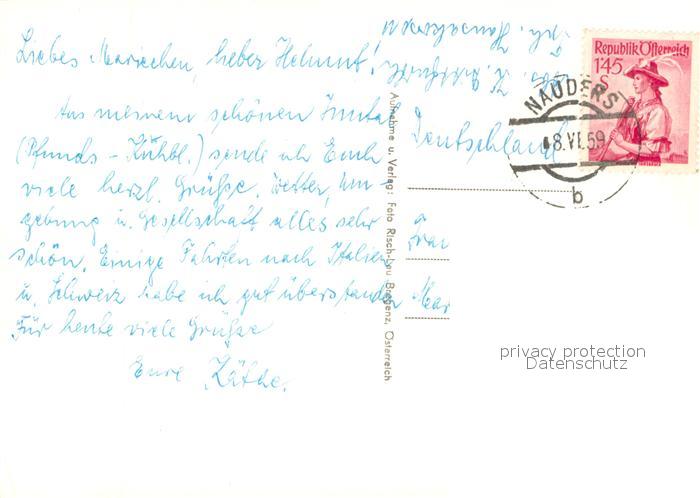 Liebes Mariechen, lieber Helmut!
Aus meinem schönen Inntal
(Pfunds - Kühbl.) sende ich Euch
viele herzl. Grüße. Wetter, Um-
gebung u. Gesellschaft alles sehr
schön. Einige Fahrten nach Italien
u. Schweiz habe ich gut überstanden
Für heute viele Grüße
Eure Käthe.
Aufnahme u. Verlag: Foto Risch-Lau Bregenz, Österreich
Deutschland
Frau
Mar
Republik Österreich
1'45
S
NAUDERS
8.VI.59
b
privacy protection
Datenschutz